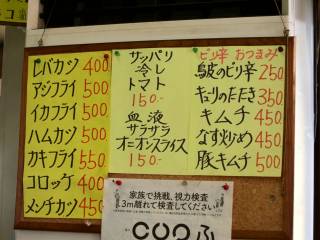 レバカツ 400
アジフライ 500
イカフライ 500
ハムカツ 500
カキフライ 550
コロッケ 400
メンチカツ 450
サッパリ
冷し
トマト
150.-
血液
サラサラ
オニオンスライス
150.-
ピリ辛 おつまみ
鳥皮のピリ辛 250
キュリのたたき 350
キムチ 450
なす炒め 450
豚キムチ 500
家族で挑戦、視力検査
3m離れて検査してください